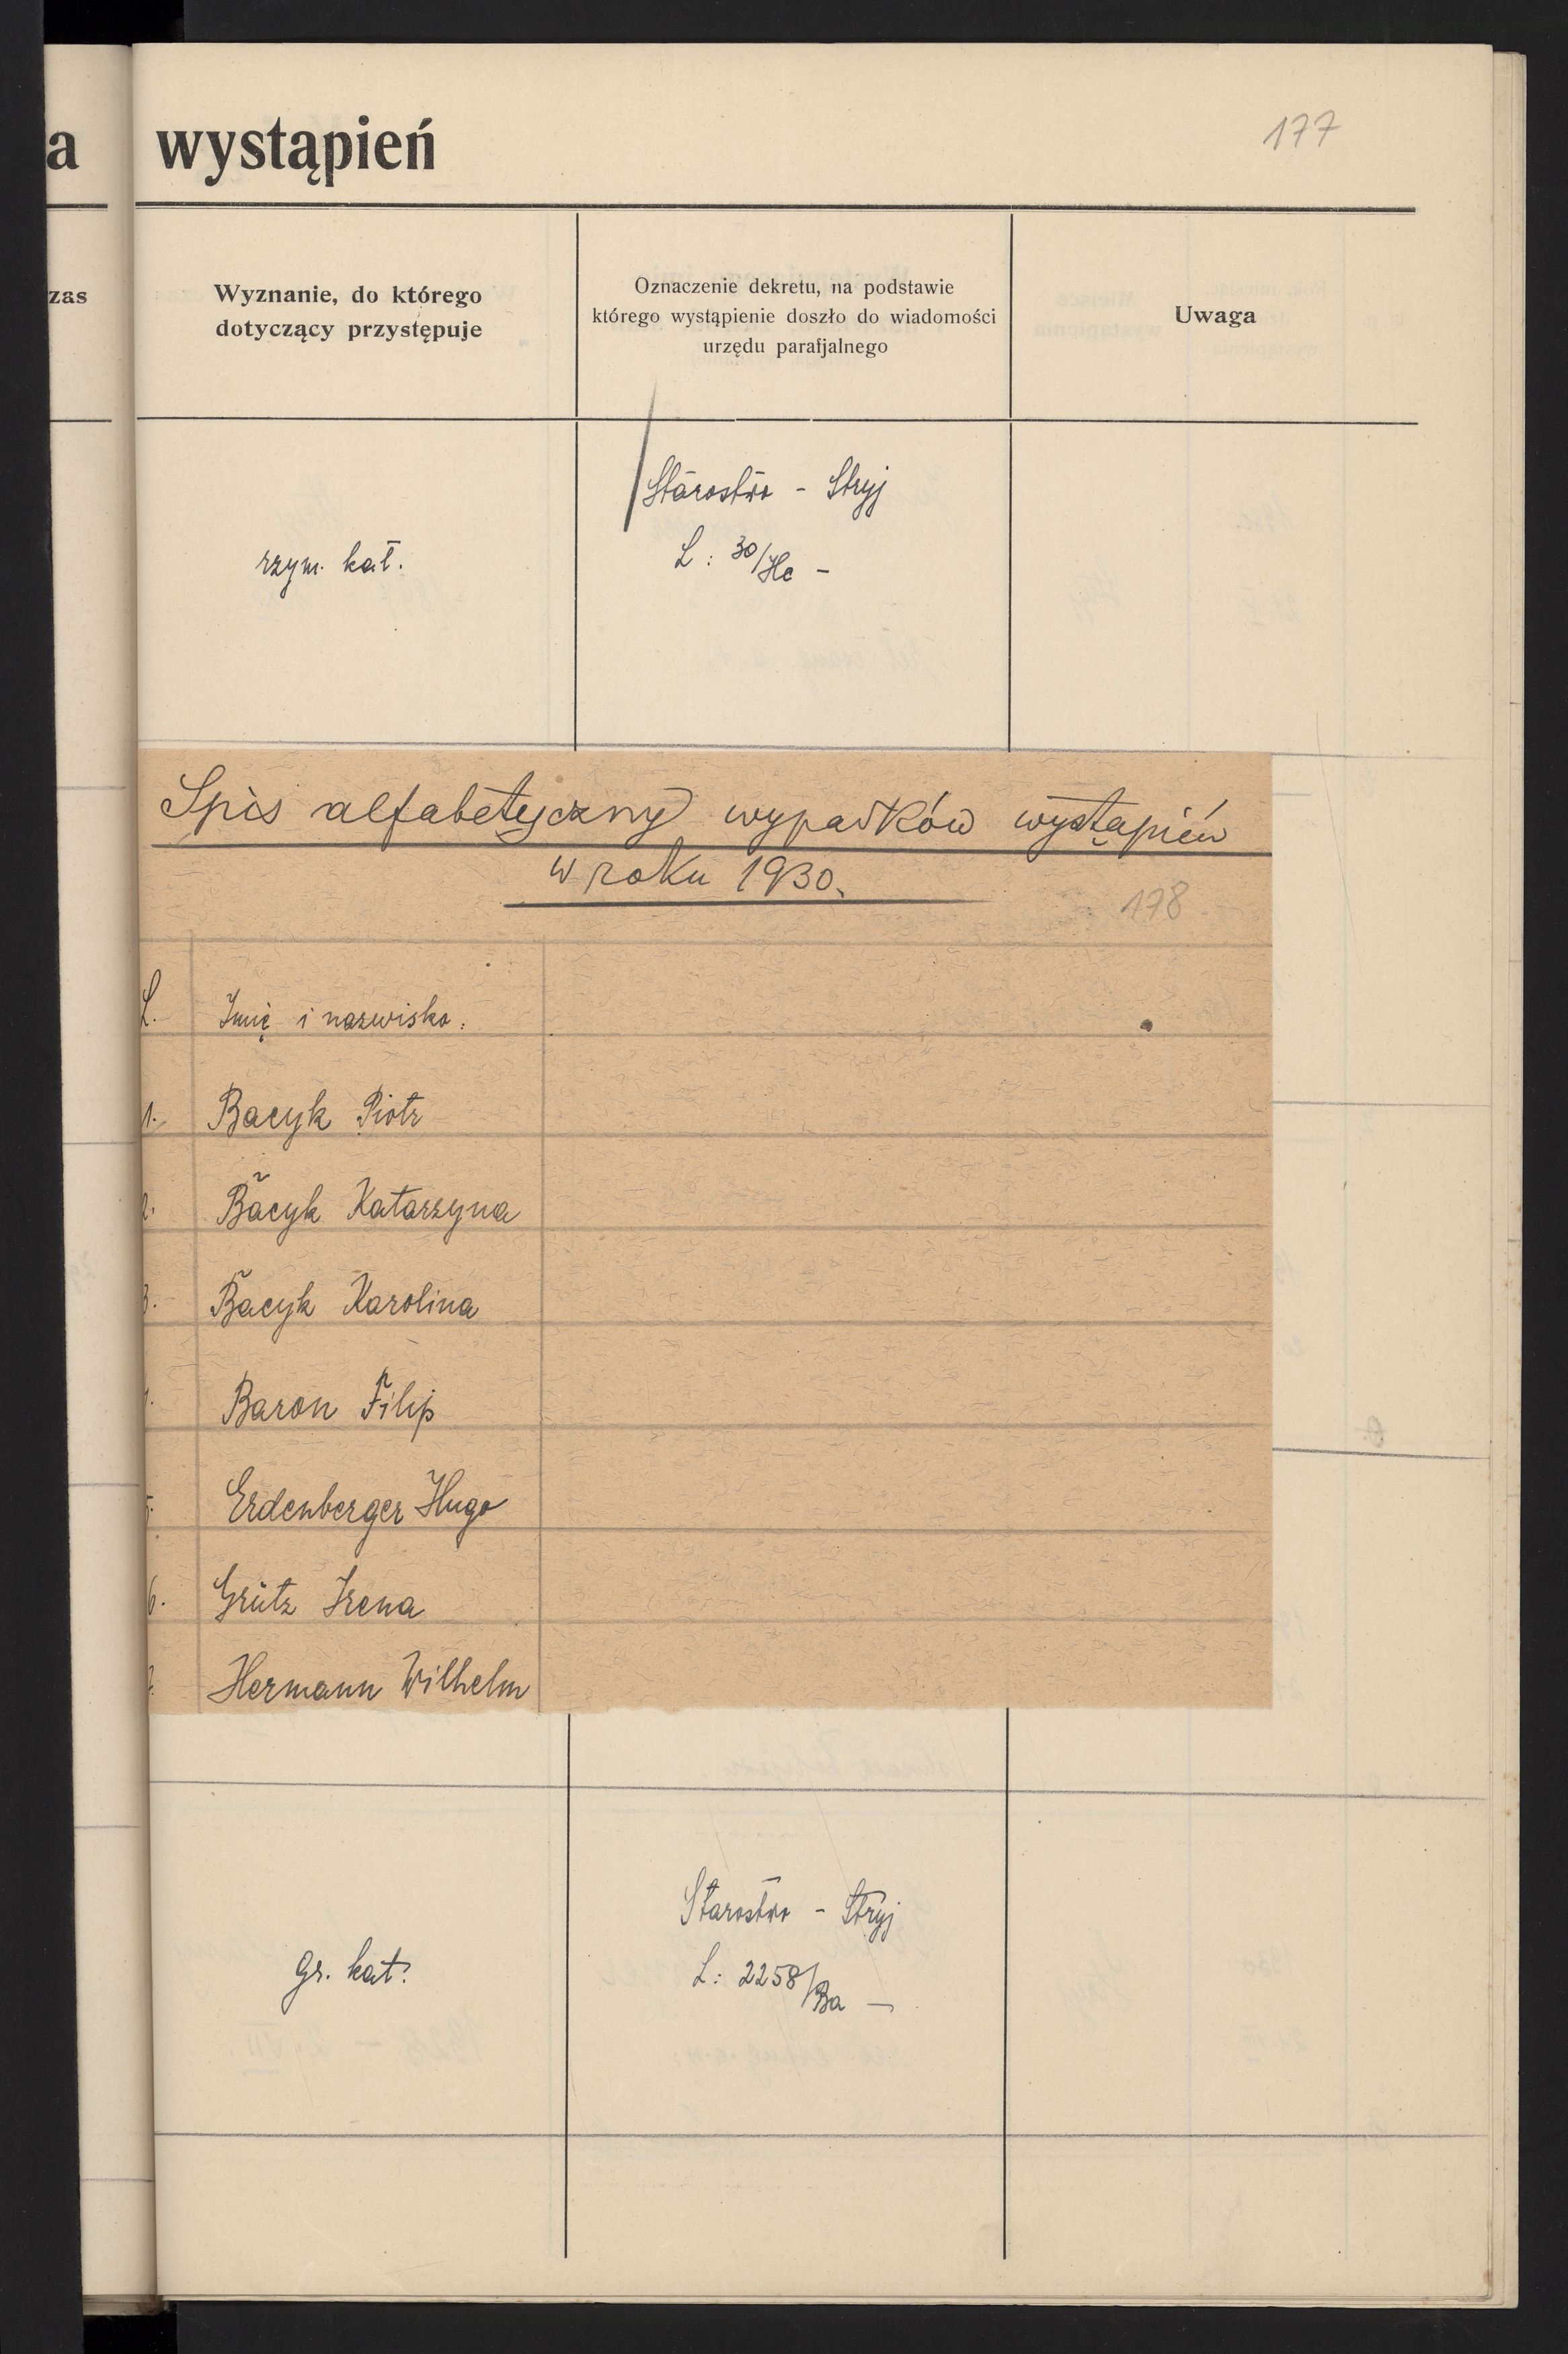 a wystąpień
177
zas
Wyznanie, do którego
dotyczący przystępuje
Oznaczenie dekretu, na podstawie
którego wystąpienie doszło do wiadomości
urzędu parafjalnego
Uwaga
rzym. kat.
Starostwo - Stryj
L: 30/He -
Spis alfabetyczny wypadków wystąpień
w roku 1930.
178
L. Imię i nazwisko.
1. Bacyk Piotr
2. Bacyk Katarzyna
3. Bacyk Karolina
Baron Filip
5. Erdenberger Hugo
6. Grütz Irena
7. Hermann Wilhelm
gr. kat.
Starostwo - Stryj
L: 2258/Ba -